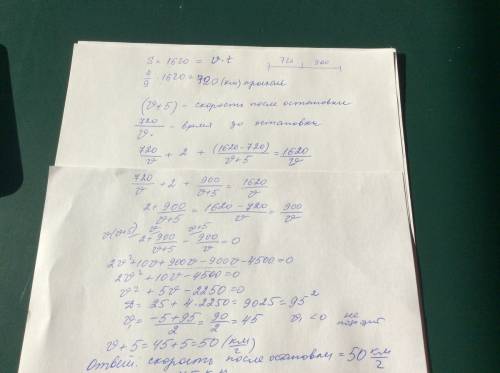 S = 1620 = v·t
720 900
4/9 · 1620 = 720 (км) проехал
(v+5) - скорость после остановки
720/v - время до остановки
720/v + 2 + (1620-720)/(v+5) = 1620/v
720/v + 2 + 900/(v+5) = 1620/v
2 + 900/(v+5) = (1620-720)/v = 900/v
v(v+5) v v+5
2 + 900/(v+5) - 900/v = 0
2v² + 10v + 900v - 900v - 4500 = 0
2v² + 10v - 4500 = 0
v² + 5v - 2250 = 0
D = 25 + 4·2250 = 9025 = 95²
v = (-5+95)/2 = 90/2 = 45 v, < 0 не
v + 5 = 45 + 5 = 50 (км/
Ответ: скорость после остановки = 50 км/